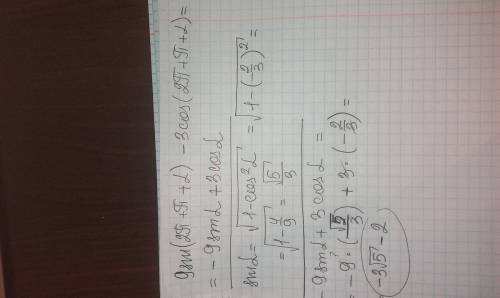 9sin(2π+π+α) -3cos(2π+π+α)=
= -9sinα+3cosα
sinα= √(1-cos²α) = √(1-(-2/3)²) =
= √(1-4/9) = √5/3
-9sinα+3cosα =
= -9·(√5/3) + 3·(-2/3) =
= -3√5-2